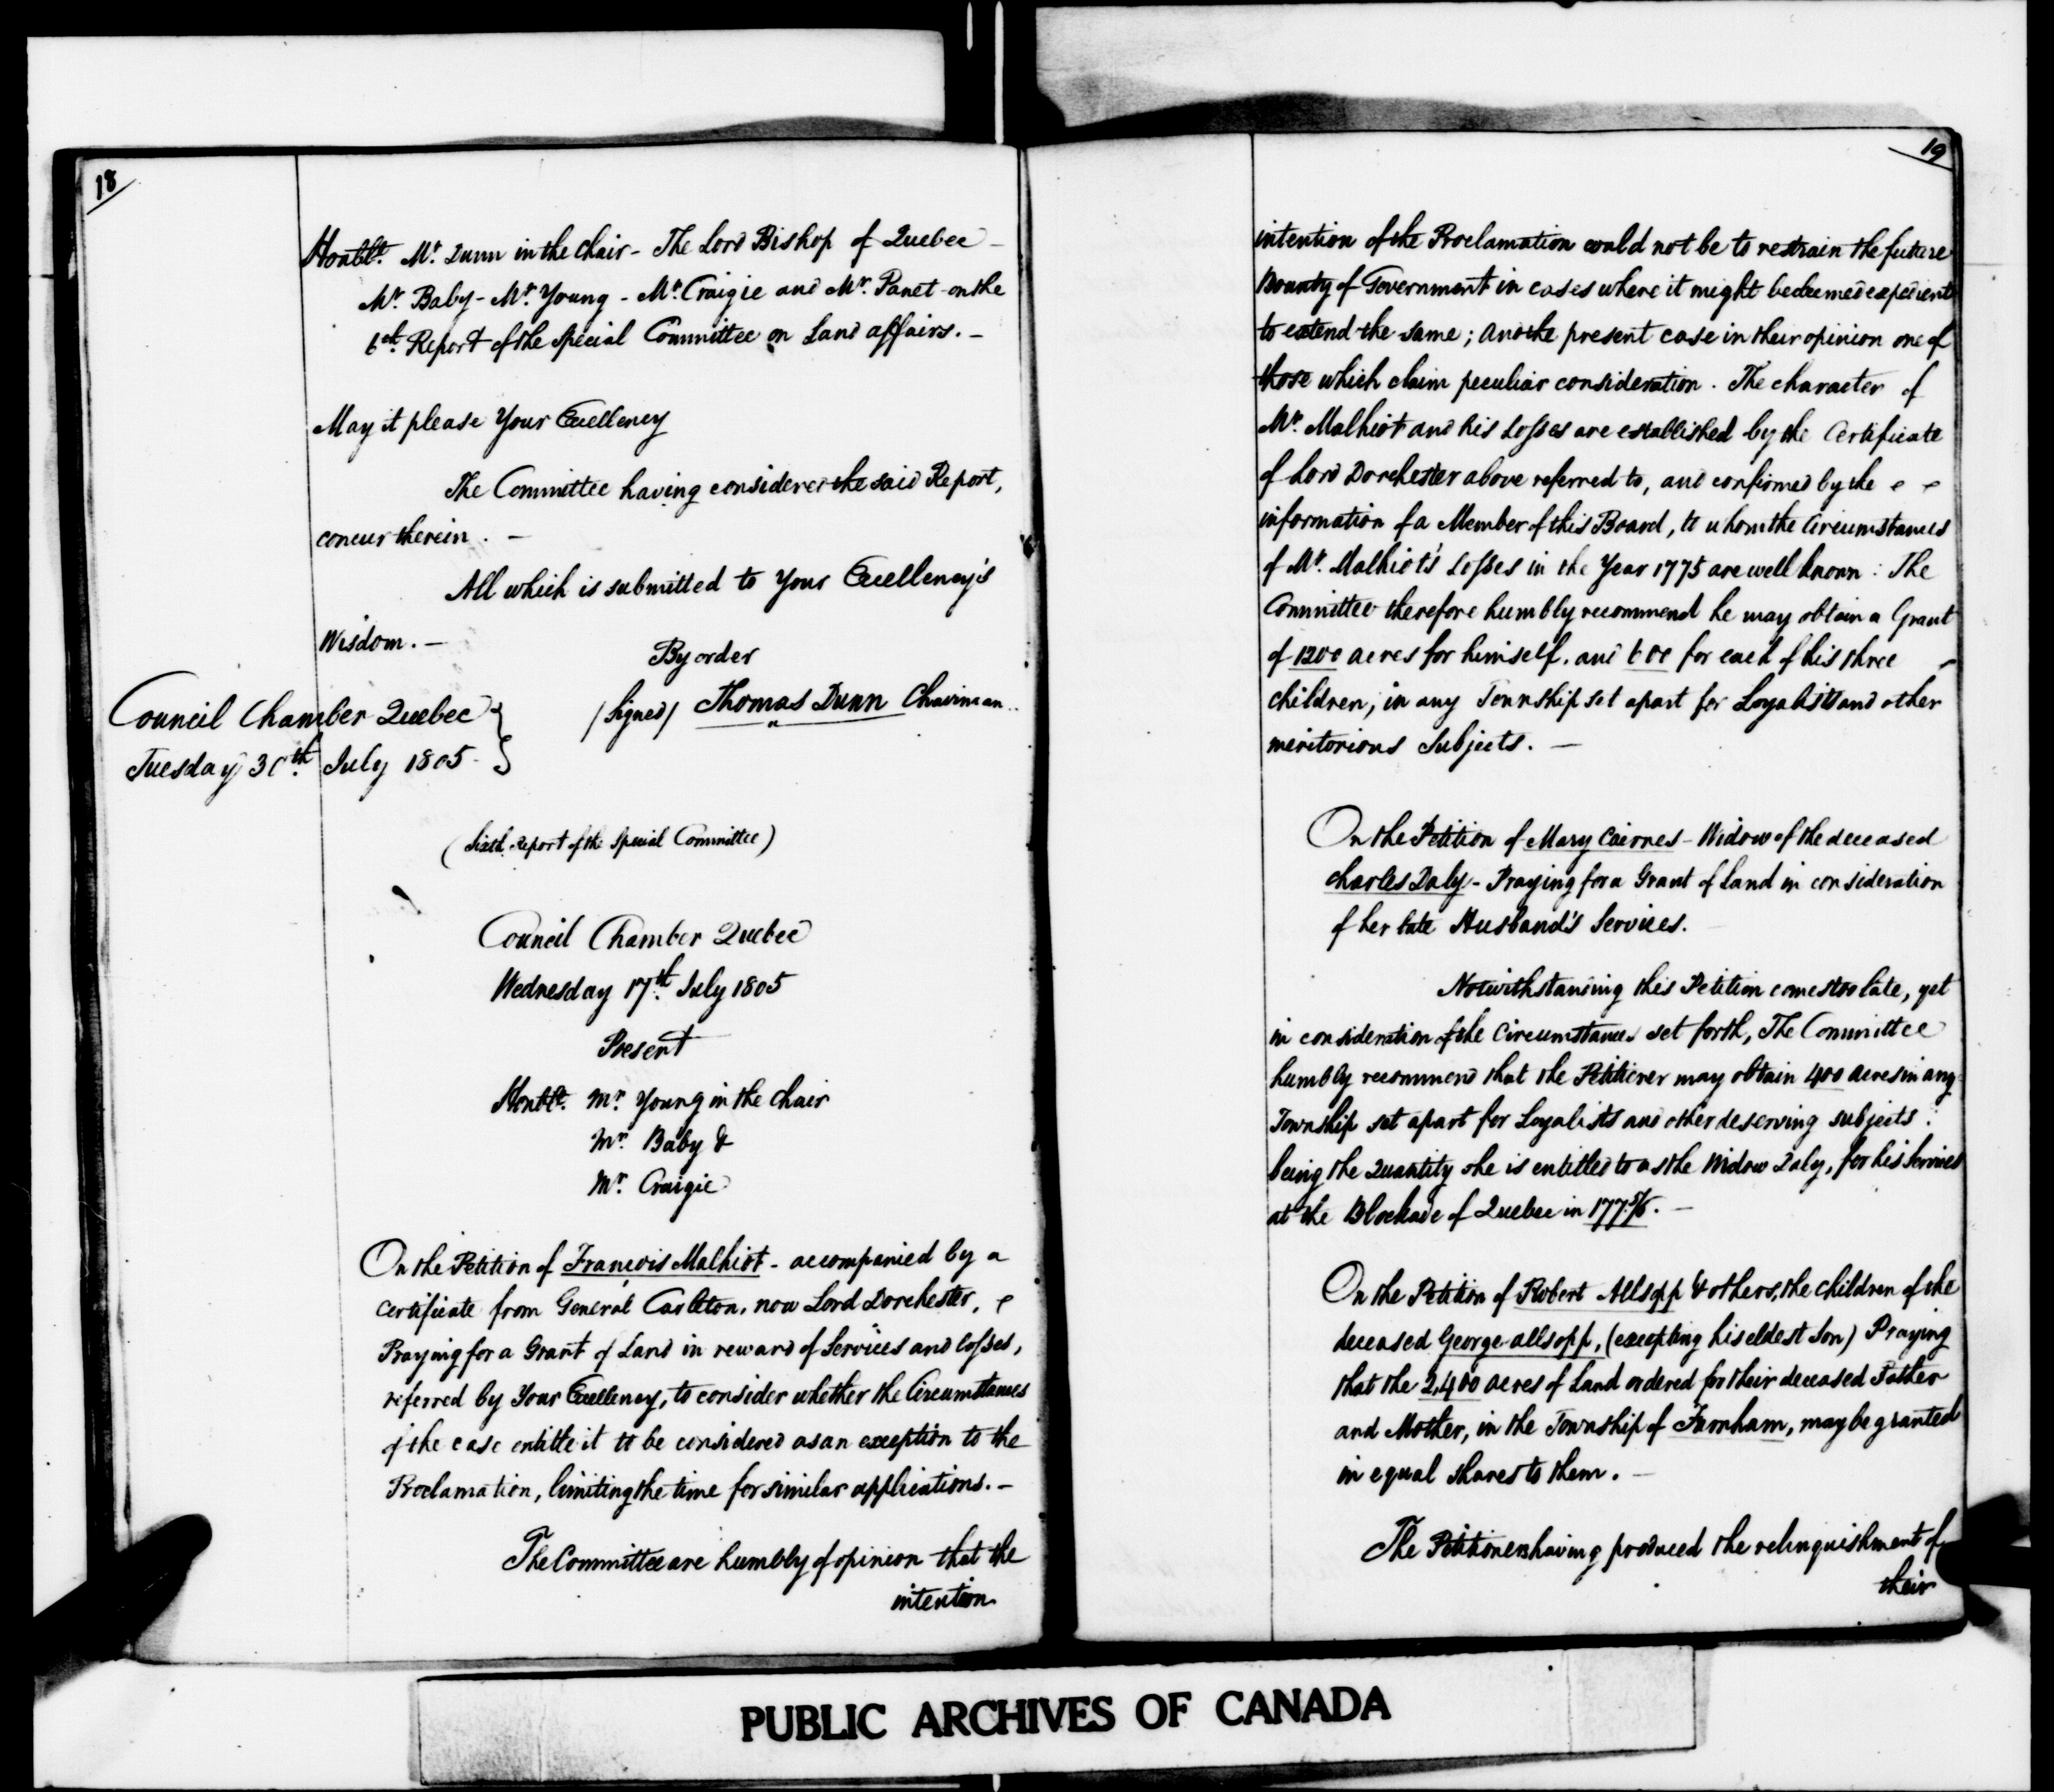 18
Honble. Mr. Dunn in the Chair - The Lord Bishop of Quebec -
Mr. Baby - Mr. Young - Mr. Craigie and Mr. Panet - on the
6th. Report of the Special Committee on Land affairs. -
May it please Your Excellency
The Committee having considered the said Report,
concur therein . -
All which is submitted to Your Excellency's
Wisdom. -
By order
(Signed) Thomas Dunn Chairman..
Council Chamber Quebec
Tuesday 30th. July 1805 -
(Sixth Report of the Special Committee)
Council Chamber Quebec
Wednesday 17th. July 1805
Present
Honble. Mr. Young in the Chair
Mr. Baby &
Mr. Craigie
On the Petition of François Malhiot - accompanied by a
Certificate from General Carleton, now Lord Dorchester,
Praying for a Grant of Land in reward of Services and losses,
referred by Your Excellency, to consider whether the Circumstances
of the case entitle it to be considered as an exception to the
Proclamation, limiting the time for similar applications. -
The Committee are humbly of opinion that the
intention
19
intention of the Proclamation could not be to restrain the future
Bounty of Government in cases where it might be deemed expedient
to extend the same; and the present case in their opinion one of
those which claim peculiar consideration . The character of
Mr. Malhiot and his Losses are established by the Certificate
of Lord Dorchester above referred to, and confirmed by the
information of a Member of this Board, to whom the Circumstances
of Mr. Malhiot's Losses in the Year 1775 are well known : The
Committee therefore humbly recommend he may obtain a Grant
of 1200 acres for himself, and 600 for each of his three
children; in any Township set apart for Loyalists and other
meritorious Subjects. -
On the Petition of Mary Cairnes - Widow of the deceased
Charles Daly - Praying for a Grant of Land in consideration
of her late Husband's Services.
Notwithstanding this Petition comes too late, yet
in consideration of the Circumstances set forth, The Committee
humbly recommend that the Petitioner may obtain 400 acres in any
Township set apart for Loyalists and other deserving subjects :
being the Quantity she is entitled to as the Widow Daly, for his Services
at the Blockade of Quebec in 1775/6. -
On the Petition of Robert Allsopp & others, the children of the
deceased George allsopp, (excepting his eldest Son) Praying
that the 2,400 acres of Land ordered for their deceased Father
and Mother, in the Township of Farnham, may be granted
in equal shares to them. -
The Petitioners having produced the relinquishment of
their
PUBLIC ARCHIVES OF CANADA